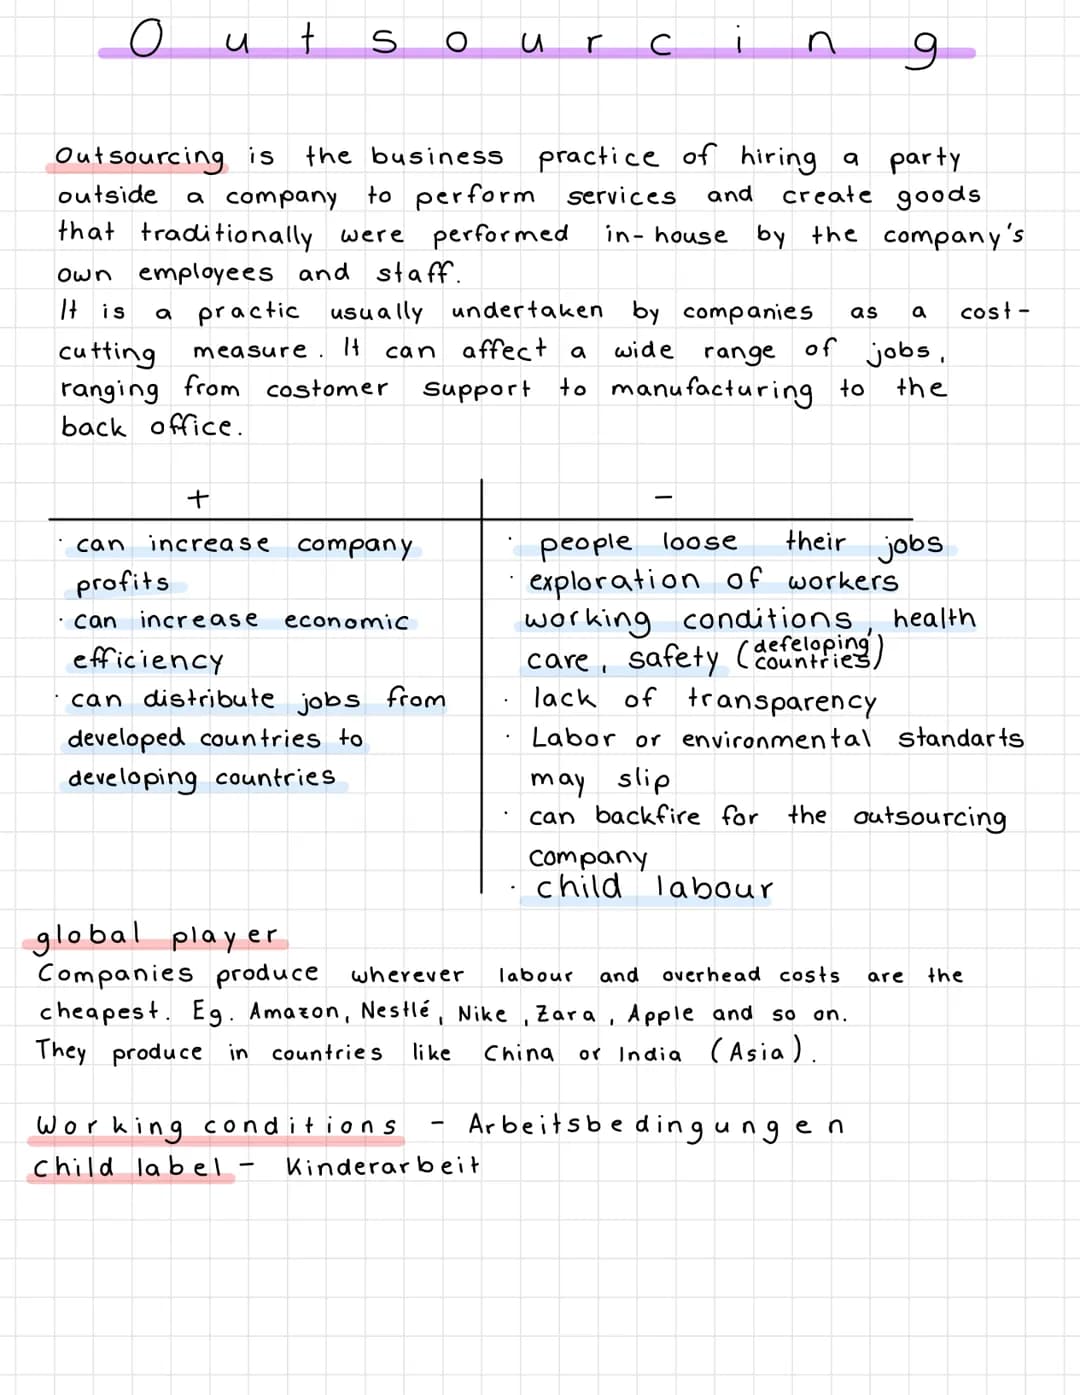 Outsourcing
Outsourcing is the business practice of hiring a party
outside a company to perform services and create goods
that traditionally were performed in-house by the company's
own employees and staff.
It is a practic usually undertaken by companies as a cost-
cutting measure. It can affect a wide range of jobs,
ranging from costomer support to manufacturing to the
back office.
+
· can increase company
profits
· can increase economic
efficiency
· can distribute jobs from
developed countries to
developing countries
-
· people loose their jobs
· exploration of workers
working conditions, health
care, safety (defeloping
countries)
· lack of transparency
· Labor or environmental standarts
may slip
· can backfire for the outsourcing
company
· child labour
global player
Companies produce wherever labour and overhead costs are the
cheapest. Eg. Amazon, Nestlé, Nike, Zara, Apple and so on.
They produce in countries like China or India (Asia).
Working conditions - Arbeitsbedingungen
child label - Kinderarbeit